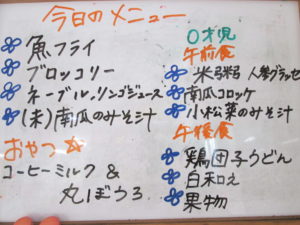 今日のメニュー
魚フライ
ブロッコリー
ネーブル,リンゴジュース
(未)南瓜のみそ汁
おやつ☆
コーヒーミルク &
丸ぼうろ
0才児
午前食
米粥 人参グラッセ
南瓜コロッケ
小松菜のみそ汁
午後食
鶏団子うどん
白和え
果物